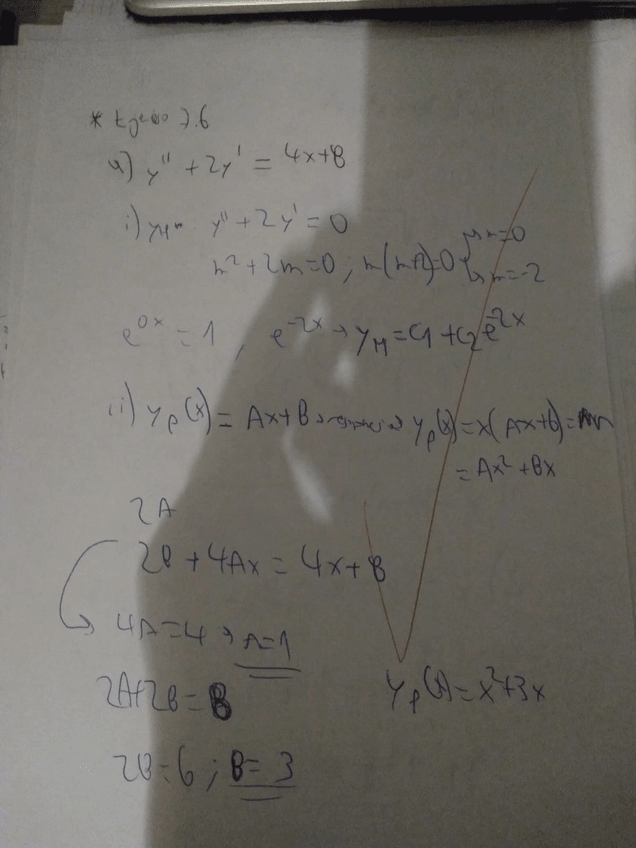 * 7.6
a) y'' + 2y' = 4x+8
i) y_H y'' + 2y' = 0
m² + 2m = 0 ; m(m+2)=0 m=0
m=-2
e^{0x} = 1 , e^{-2x} → y_H = C1 + C2 e^{-2x}
ii) y_p(x) = Ax+B → y_p(x) = x(Ax+B) =
= Ax² + Bx
2A
2B + 4Ax = 4x + 8
4A = 4 → A=1
2A+2B = 8
y_p(x) = x²+3x
2B = 6 ; B = 3